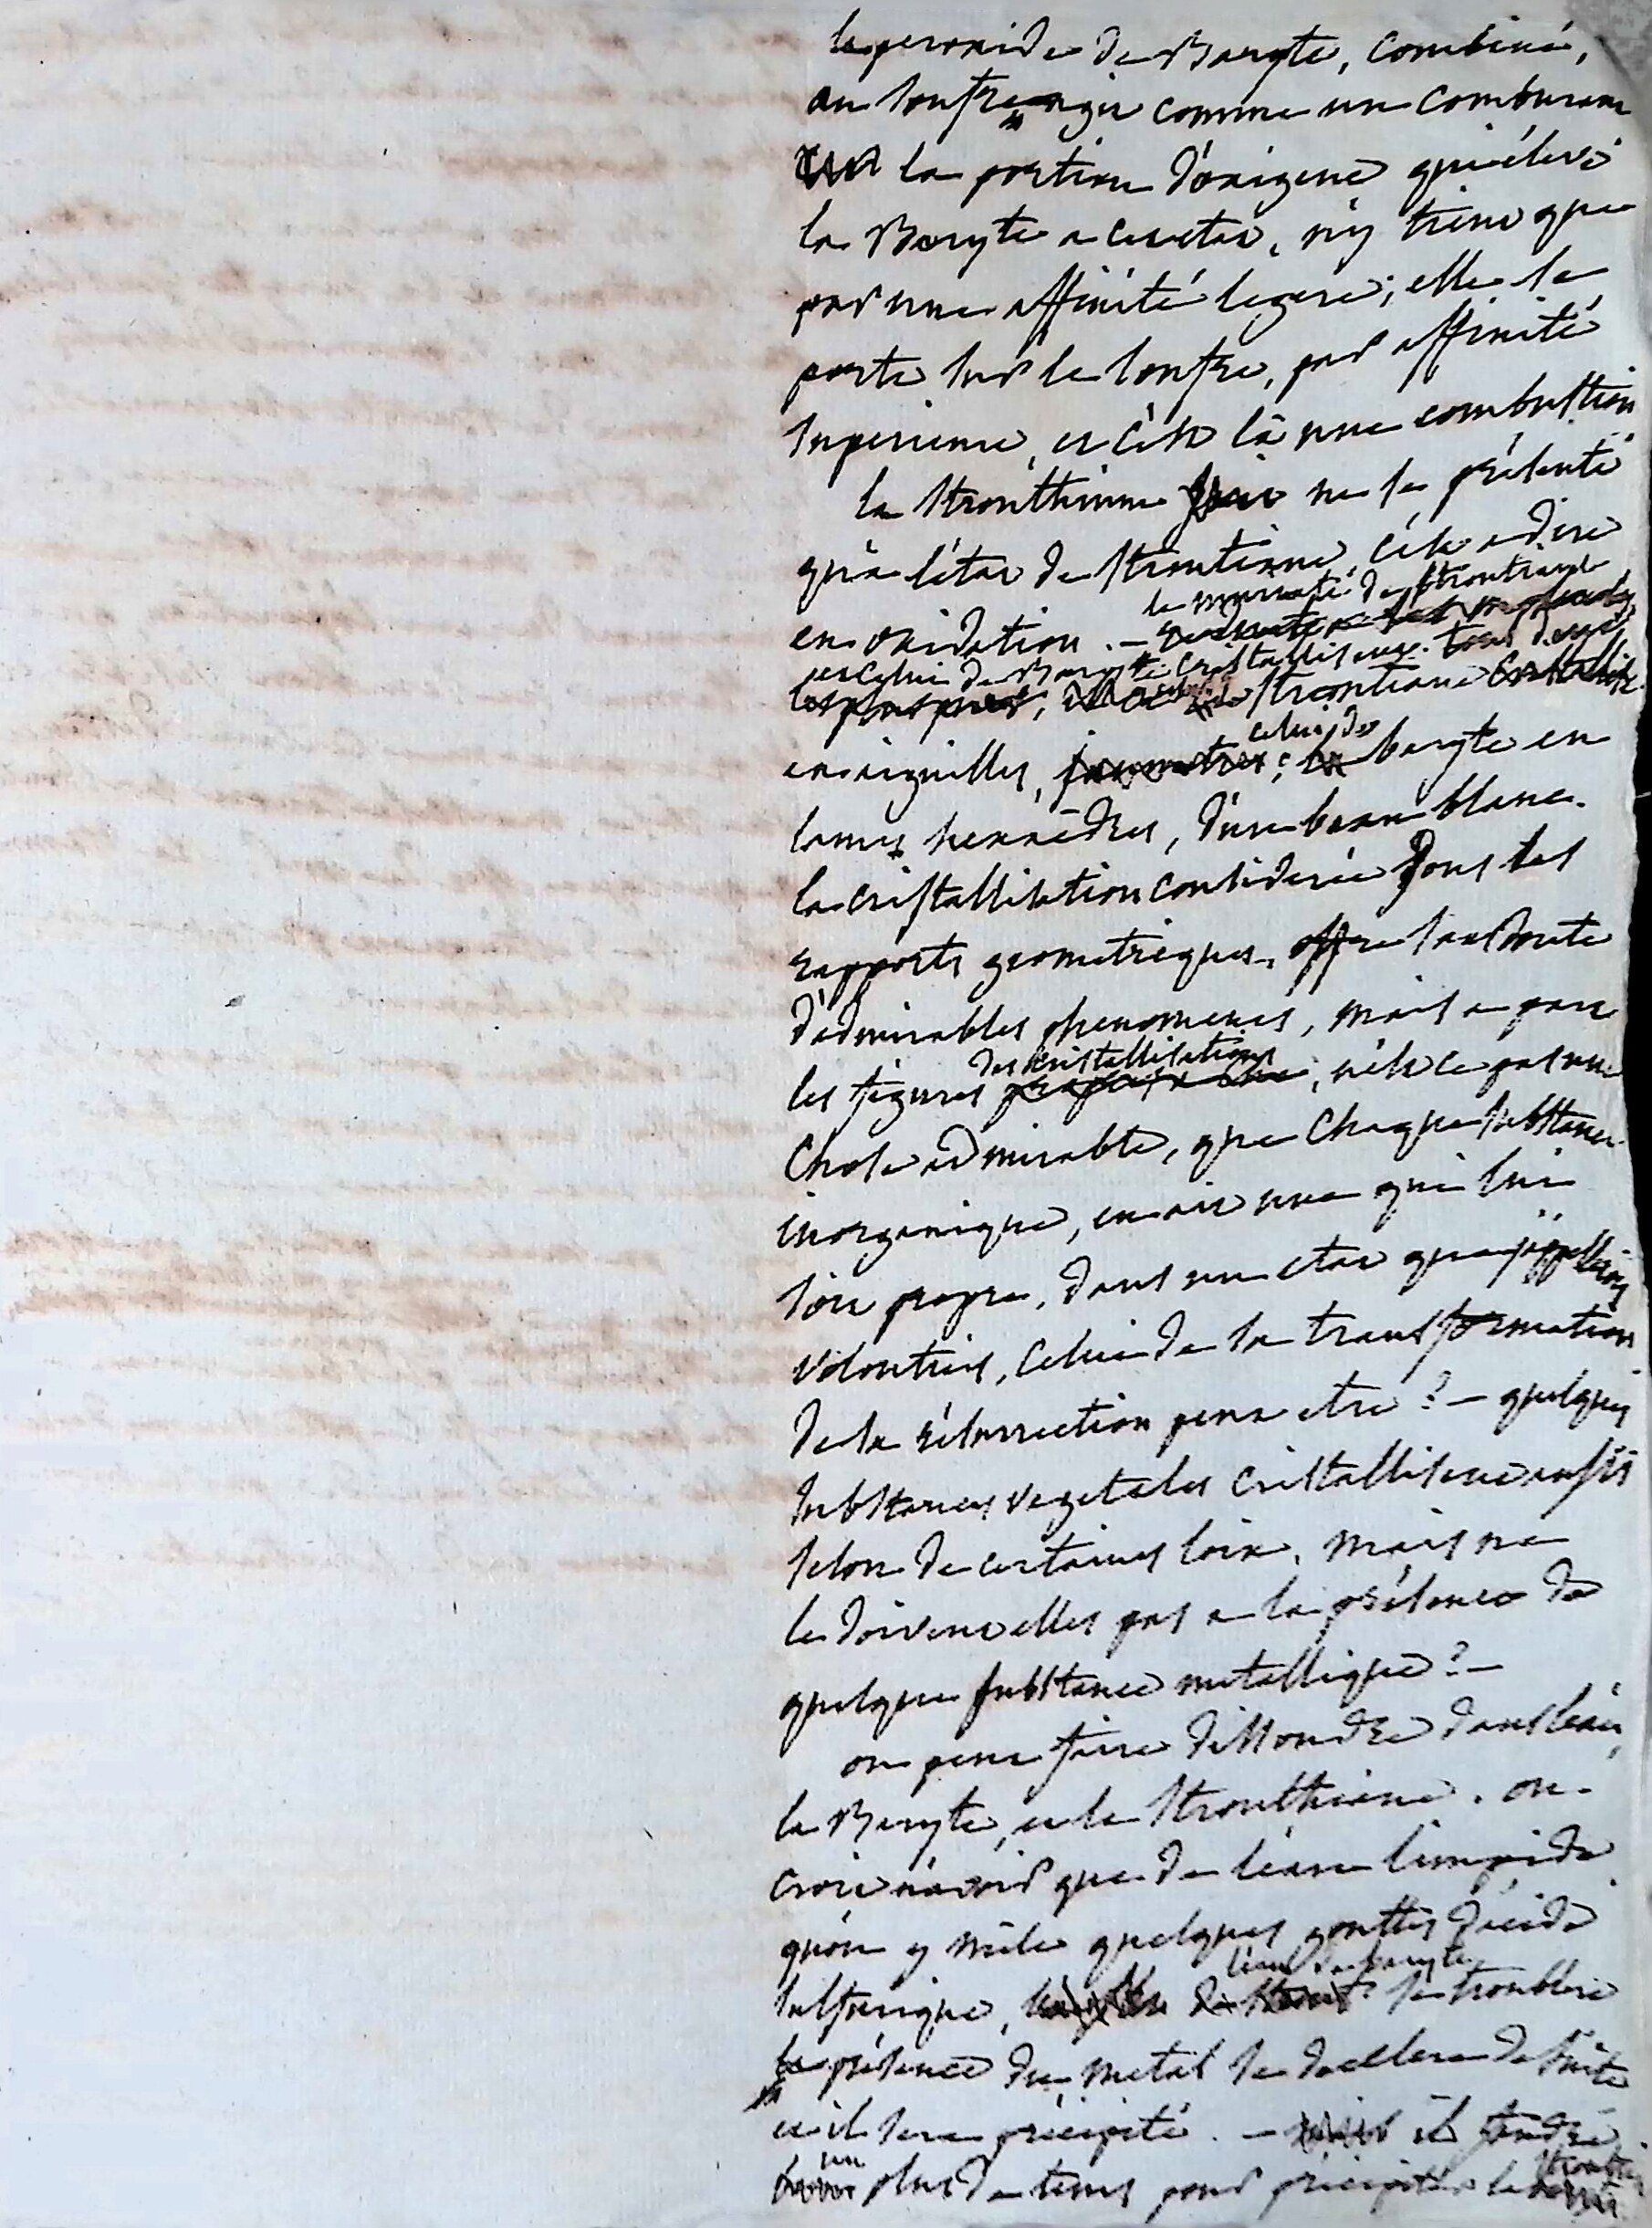 le peroxide de Baryte, combiné,
au soufre agit comme un comburant
la portion d'oxigene qui éleve
la Baryte a cet etat, n'y tient que
par une affinité legere; elle se
porte sur le soufre, par affinité
superieure, et c'est là une combustion
la Stronthiane ne se présente
qu'a l'état de strontiane, c'est a dire
en oxidation. –
le muriate de strontiane
et celui de Baryte cristallisent tous deux
strontiane cristallise
en aiguilles,
celui de
baryte en
lames hexaèdres, d'un beau blanc.
la cristallisation considerée dans ses
rapports geometriques, offre sans doute
d'admirables phenomenes, mais a part
des cristallisations
les figures , n'est ce pas une
Chose admirable, que Chaque substance
inorganique, en ait une qui lui
soit propre, dans un etat que j'appellerois
volontiers, Celui de sa transformation
de sa résurrection peut etre? – quelques
substances vegetales Cristallisent aussi
selon de certaines loix, mais ne
le doivent elles pas a la présence de
quelque substance metallique? –
on peut faire dissoudre dans l'eau,
la Baryte, et la Stronthiane. on
croit n'avoir que de l'eau limpide
qu'on y mêle quelques gouttes d'acide
l'eau de baryte
sulfurique, se troublera
la présence du metal se decellera de suite
et il sera précipité. – il faudra
un
plus de tems pour précipiter la